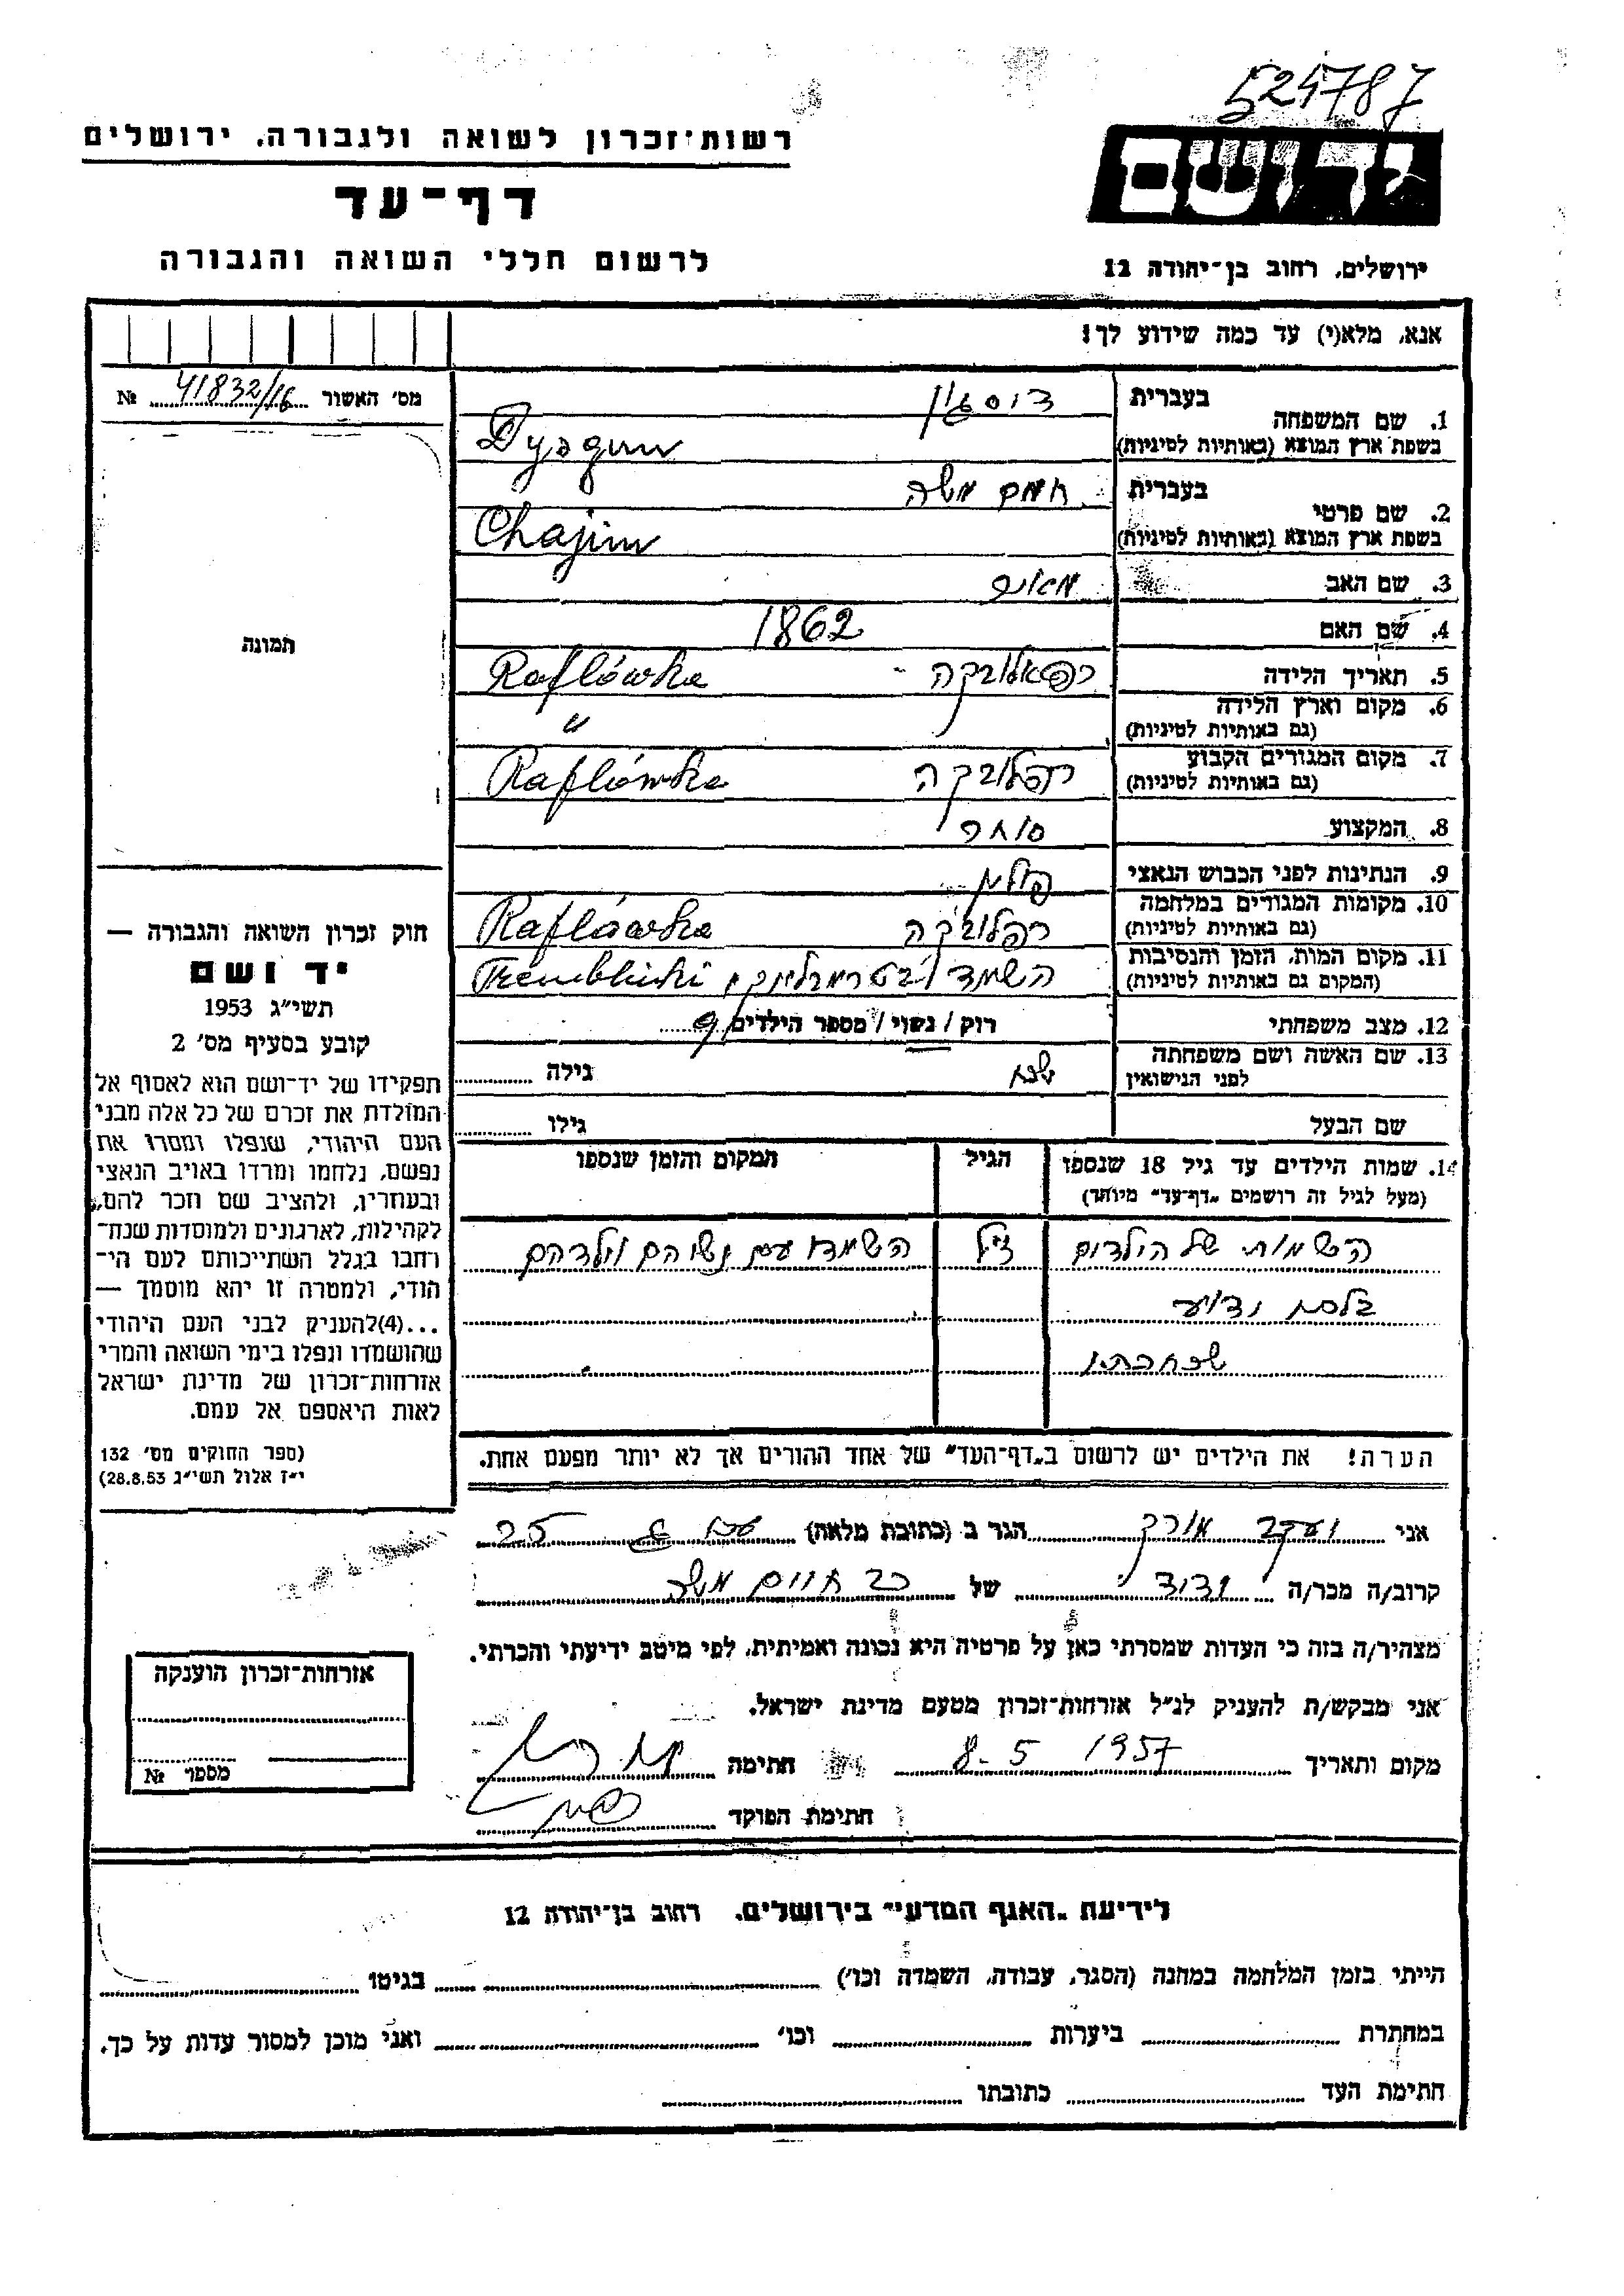 524787
רשות־זכרון לשואה ולגבורה, ירושלים
יד ושם
דף־עד
לרשום חללי השואה והגבורה
ירושלים, רחוב בן־יהודה 12
אנא, מלא(י) עד כמה שידוע לך!
מס׳ האשור 41832/16 №
בעברית
1. שם המשפחה
בשפת ארץ המוצא (באותיות לטיניות)
בעברית משה
2. שם פרטי
בשפת ארץ המוצא (באותיות לטיניות) Chajim
3. שם האב
4. שם האם 1862
5. תאריך הלידה רפאלובקה - Raflówka
6. מקום וארץ הלידה "
(גם באותיות לטיניות)
7. מקום המגורים הקבוע רפלובקה Raflówka
(גם באותיות לטיניות)
8. המקצוע סוחר
9. הנתינות לפני הכבוש הנאצי
10. מקומות המגורים במלחמה רפלובקה Raflówka
(גם באותיות לטיניות)
11. מקום המות, הזמן והנסיבות השמד
(המקום גם באותיות לטיניות)
12. מצב משפחתי רוק / נשוי / מספר הילדים 9
13. שם האשה ושם משפחתה גילה
לפני הנישואין
שם הבעל גילו
14. שמות הילדים עד גיל 18 שנספו הגיל המקום והזמן שנספו
(מעל לגיל זה רושמים „דף־עד״ מיוחד)
השמות של הילדים השמדו עם נשיהם וילדהם
שכחתי
הערה! את הילדים יש לרשום ב„דף־העד״ של אחד ההורים אך לא יותר מפעם אחת.
תמונה
חוק זכרון השואה והגבורה —
יד ושם
תשי״ג 1953
קובע בסעיף מס׳ 2
תפקידו של יד־ושם הוא לאסוף אל
המולדת את זכרם של כל אלה מבני
העם היהודי, שנפלו ומסרו את
נפשם, נלחמו ומרדו באויב הנאצי
ובעוזריו, ולהציב שם וזכר להם,
לקהילות, לארגונים ולמוסדות שנח־
רחבו בגלל השתייכותם לעם הי־
הודי, ולמטרה זו יהא מוסמך —
...(4)להעניק לבני העם היהודי
שהושמדו ונפלו בימי השואה והמרי
אזרחות־זכרון של מדינת ישראל
לאות היאספם אל עמם.
(ספר החוקים מס׳ 132
י״ז אלול תשי״ג 28.8.53)
אני יעקב הגר ב (כתובת מלאה) 25
קרוב/ה מכר/ה ידיד של חיים משה
מצהיר/ה בזה כי העדות שמסרתי כאן על פרטיה היא נכונה ואמיתית, לפי מיטב ידיעתי והכרתי.
אני מבקש/ת להעניק לנ״ל אזרחות־זכרון מטעם מדינת ישראל.
מקום ותאריך 8-5 1957 חתימה
חתימת הפוקד
אזרחות־זכרון הוענקה
מספר №
לידיעת „האגף המדעי״ בירושלים, רחוב בן־יהודה 12
הייתי בזמן המלחמה במחנה (הסגר, עבודה, השמדה וכו׳) בגיטו
במחתרת ביערות וכו׳ ואני מוכן למסור עדות על כך.
חתימת העד כתובתו